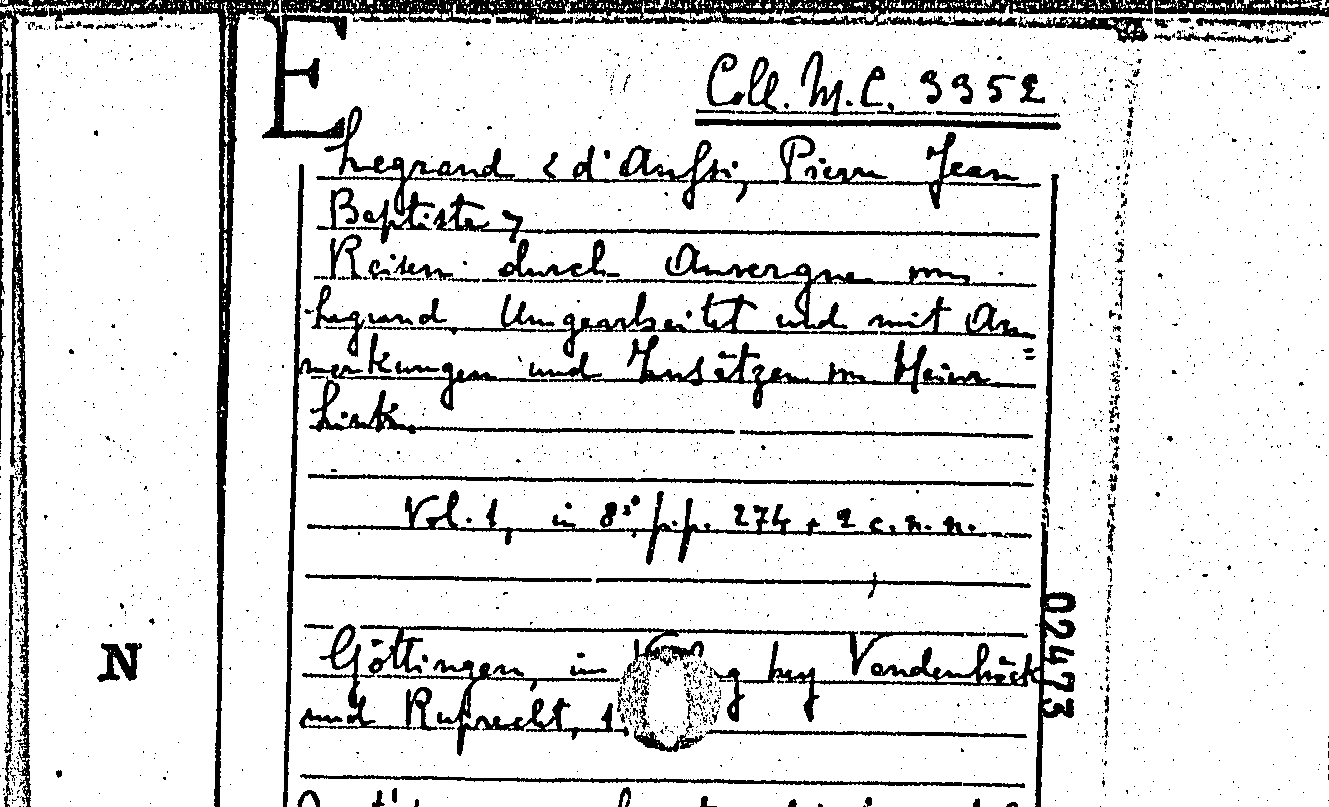 E
Coll. M.C. 3352
Legrand < d'Aussi, Pierre Jean
Baptiste >
Reisen durch Auvergne von
Legrand. Umgearbeitet und mit An=
merkungen und Zusätzen von Heinr.
Link.
Vol. 1, in 8:° p.p. 274 + 2 c.n.n.
02473
N
Göttingen, im bey Vandenhöck
und Ruprecht, 1